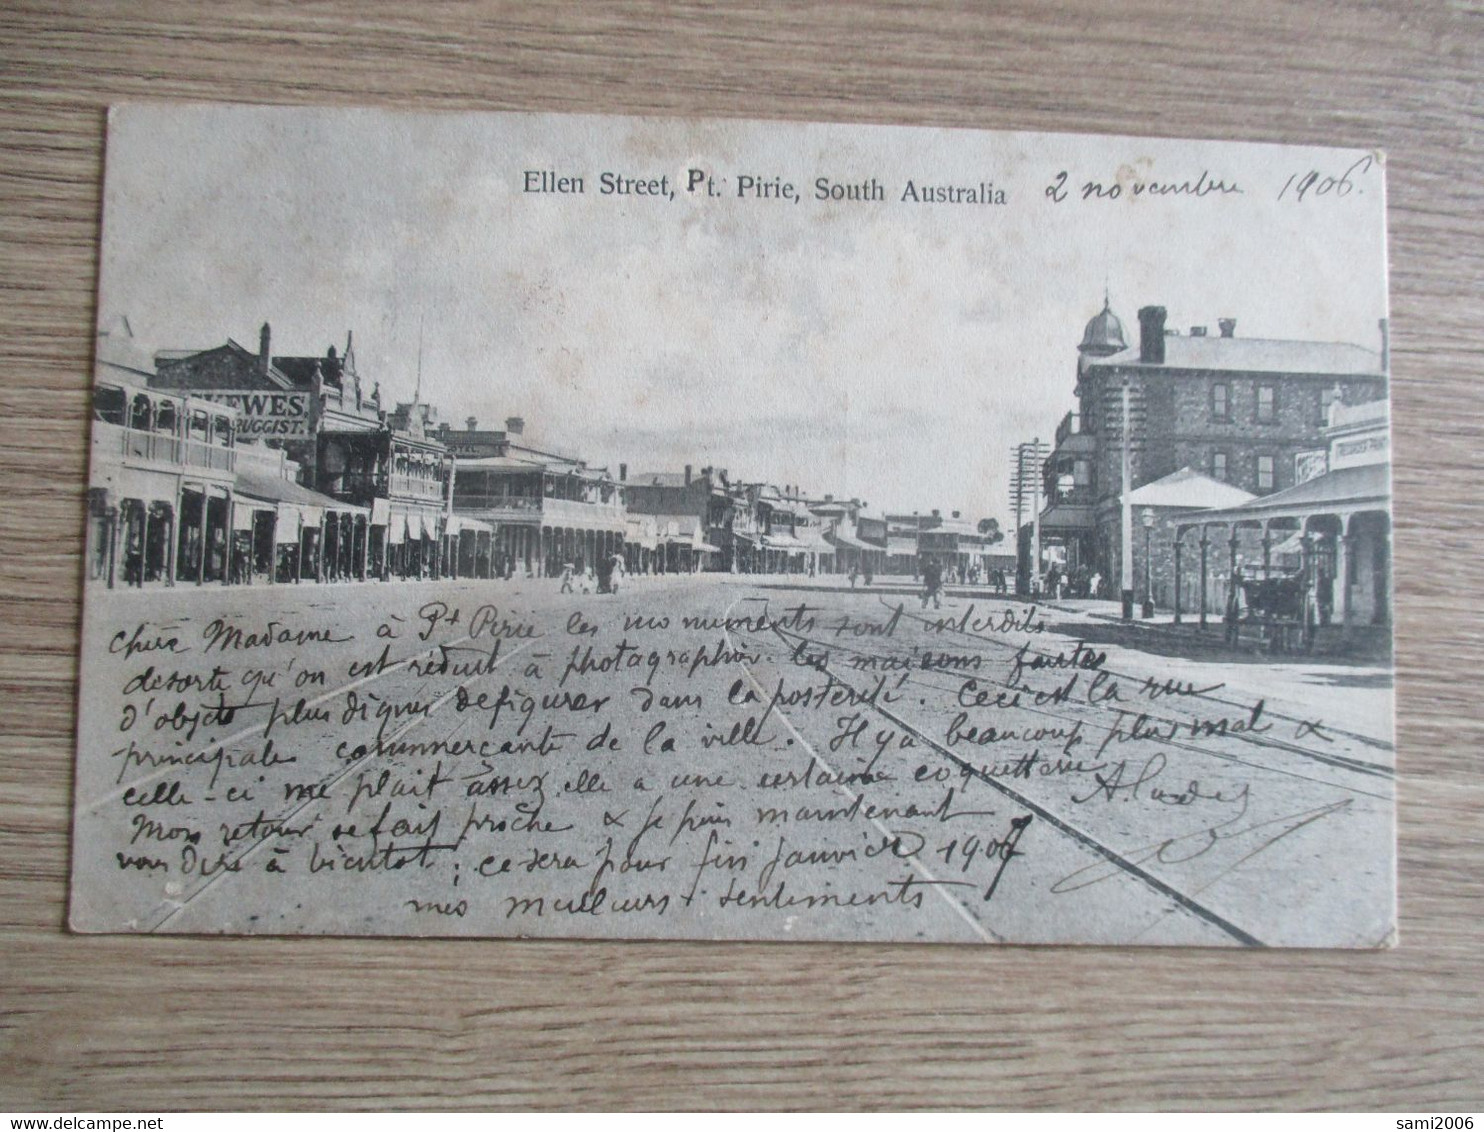 Ellen Street, Pt. Pirie, South Australia 2 novembre 1906.
KEWES.
RUGGIST.
HOTEL
chère Madame à Pt Pirie les monuments sont interdits
desorte qu'on est réduit à photographier les maisons faute
d'objets plus dignes defigurer dans la postérité. Ceci est la rue
principale commerçante de la ville. Il y a beaucoup plus mal &
celle-ci me plait assez, elle a une certaine coquetterie
Mon retour se fait proche & je puis maintenant
vous dire à bientot ; ce sera pour fin janvier 1907
mes meilleurs sentiments
sami2006